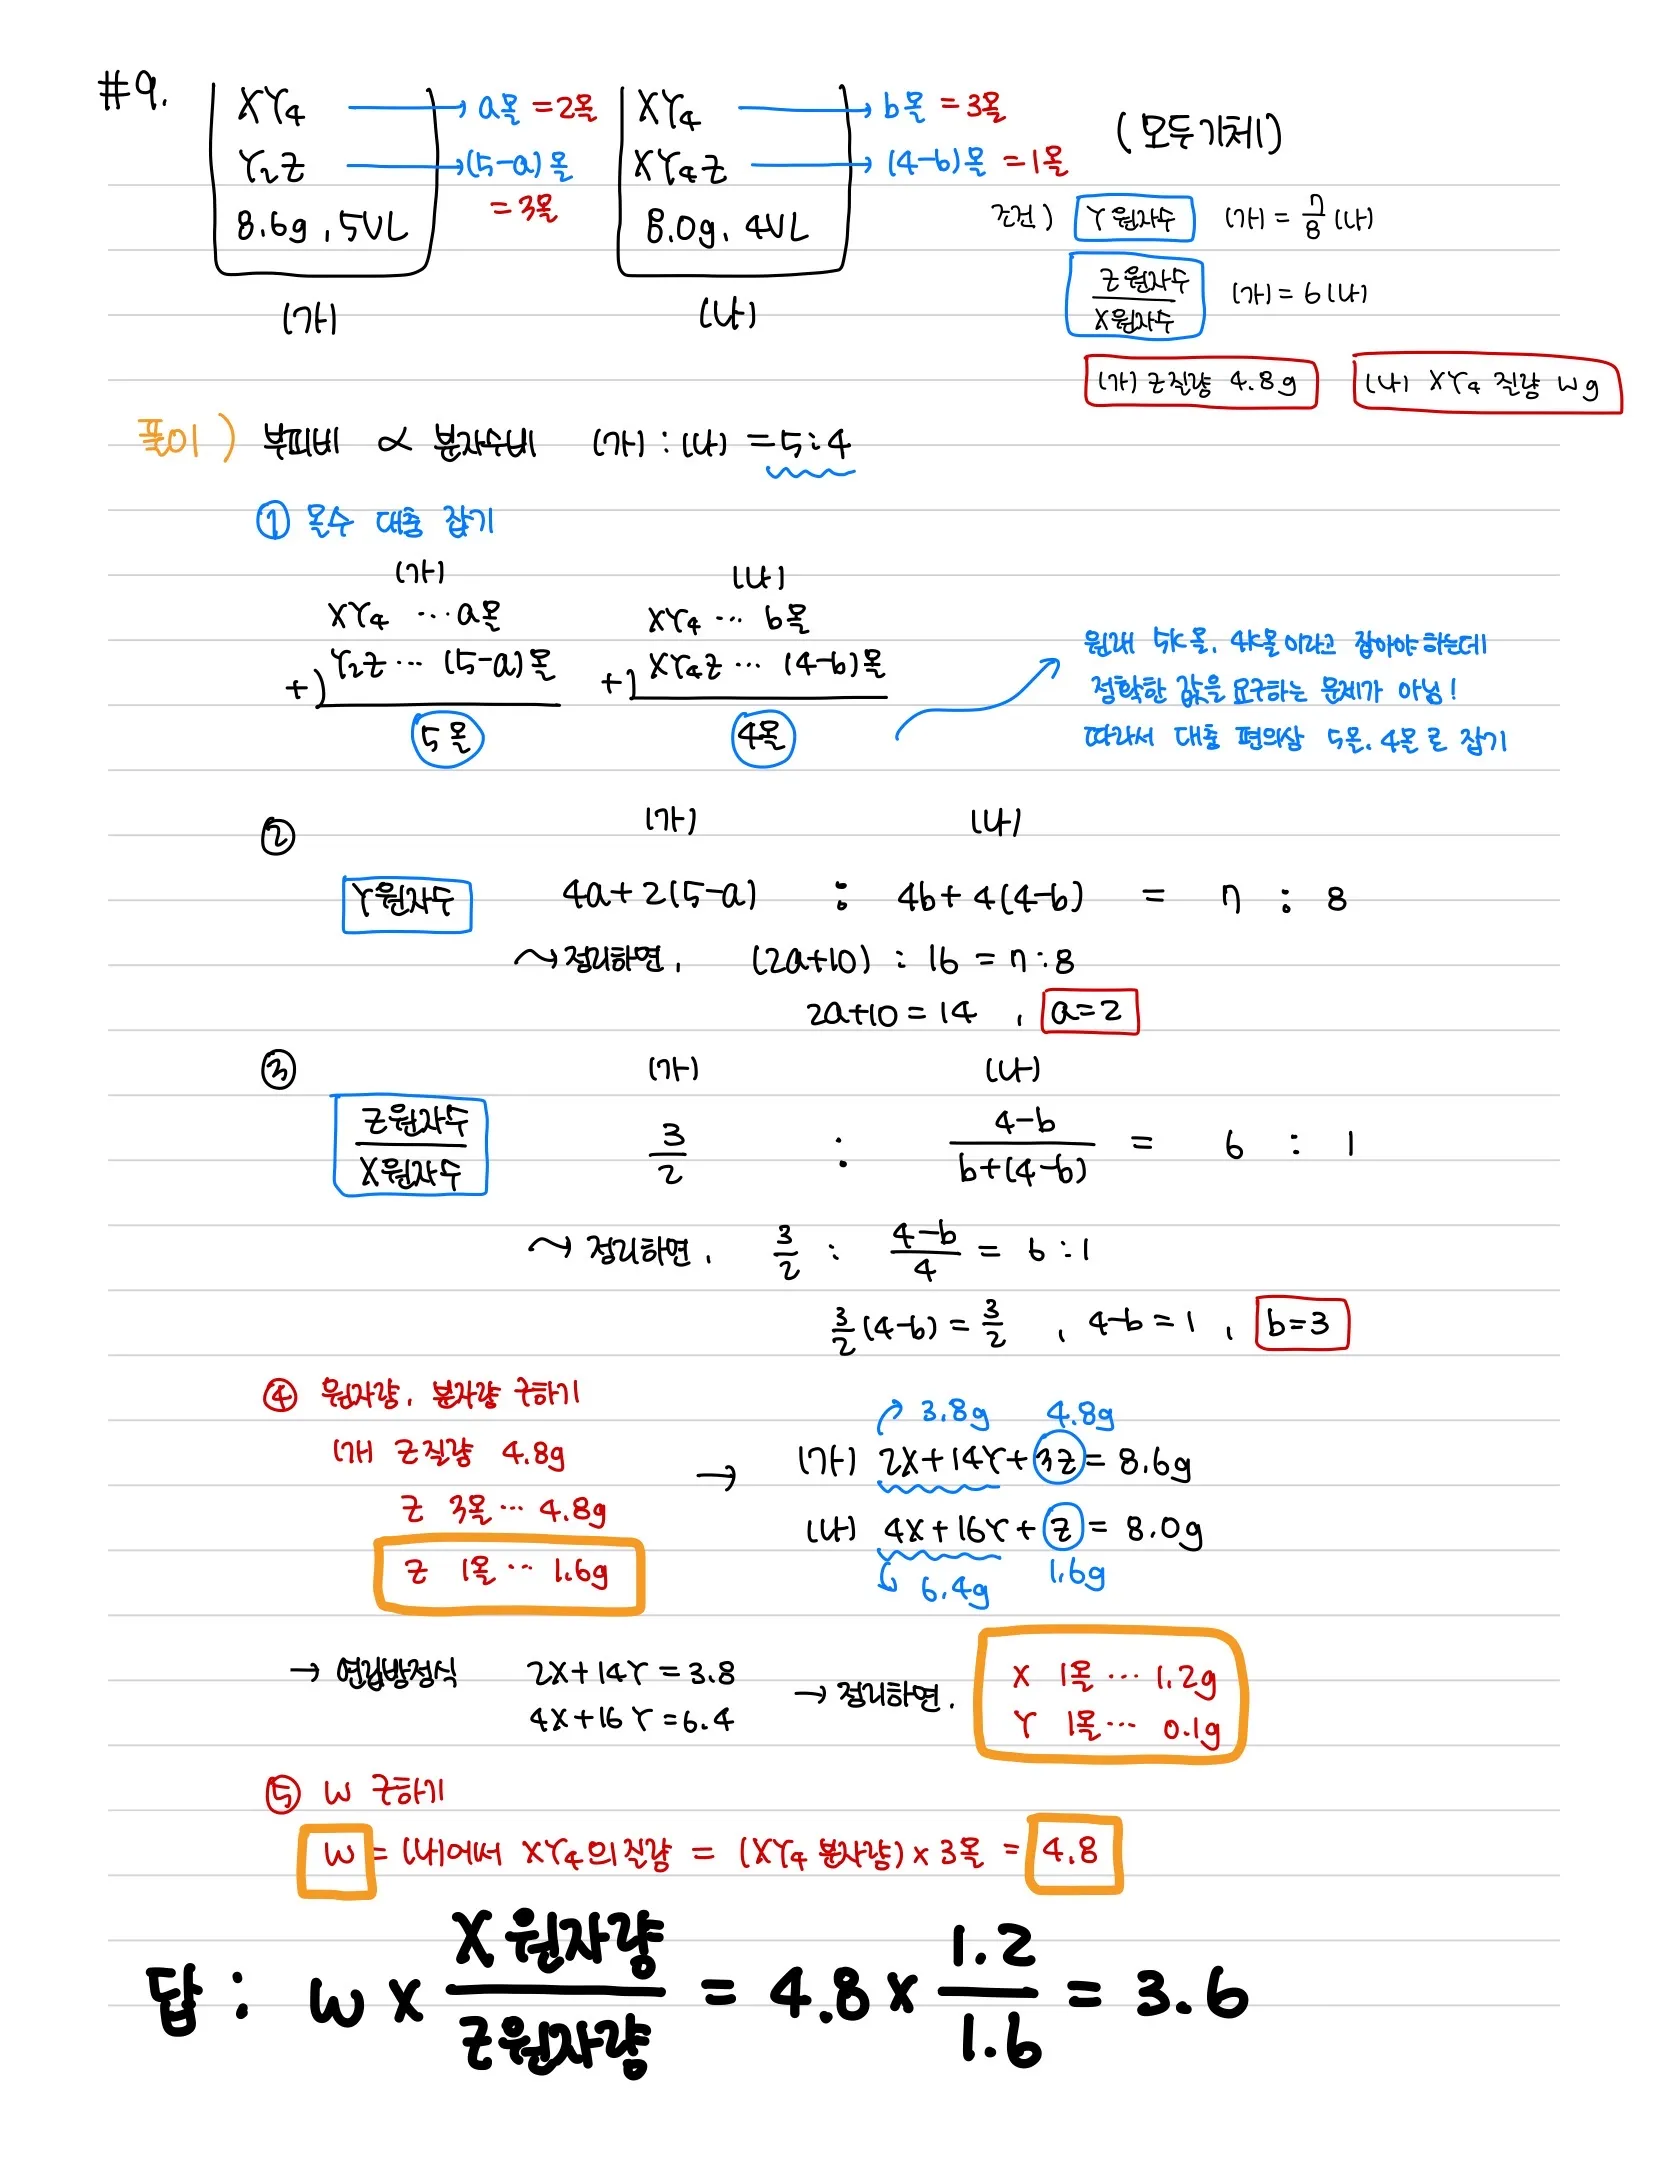 #9.
XY₄ → a몰 =2몰 XY₄ → b몰 =3몰 (모두기체)
Y₂Z → (5-a)몰 =3몰 XY₄Z → (4-b)몰 =1몰
8.6g, 5VL 8.0g, 4VL
(가) (나)
조건) Y원자수 (가) = 7/8 (나)
Z원자수/X원자수 (가) = 6(나)
(가) Z질량 4.8g (나) XY₄ 질량 wg
풀이) 부피비 ∝ 분자수비 (가) : (나) = 5:4
① 몰수 대충 잡기
(가) (나)
XY₄ … a몰 XY₄ … b몰
+) Y₂Z … (5-a)몰 +) XY₄Z … (4-b)몰
5몰 4몰
원래 5k몰, 4k몰이라고 잡아야 하는데
정확한 값을 요구하는 문제가 아님!
따라서 대충 편의상 5몰, 4몰로 잡기
② (가) (나)
Y원자수 4a+2(5-a) : 4b+4(4-b) = 7 : 8
→정리하면, (2a+10) : 16 = 7:8
2a+10=14 , a=2
③ (가) (나)
Z원자수/X원자수 3/2 : (4-b)/(b+(4-b)) = 6 : 1
→ 정리하면, 3/2 : (4-b)/4 = 6:1
3/2(4-b) = 3/2 , 4-b=1 , b=3
④ 원자량, 분자량 구하기
(가) Z질량 4.8g
Z 3몰 … 4.8g
Z 1몰 … 1.6g
3.8g 4.8g
→ (가) 2X+14Y+3Z = 8.6g
(나) 4X+16Y+Z = 8.0g
6.4g 1.6g
→ 연립방정식 2X+14Y=3.8
4X+16Y=6.4
→정리하면,
X 1몰 … 1.2g
Y 1몰 … 0.1g
⑤ w 구하기
w = (나)에서 XY₄의 질량 = (XY₄ 분자량) x 3몰 = 4.8
답 : w x X원자량/Z원자량 = 4.8 x 1.2/1.6 = 3.6